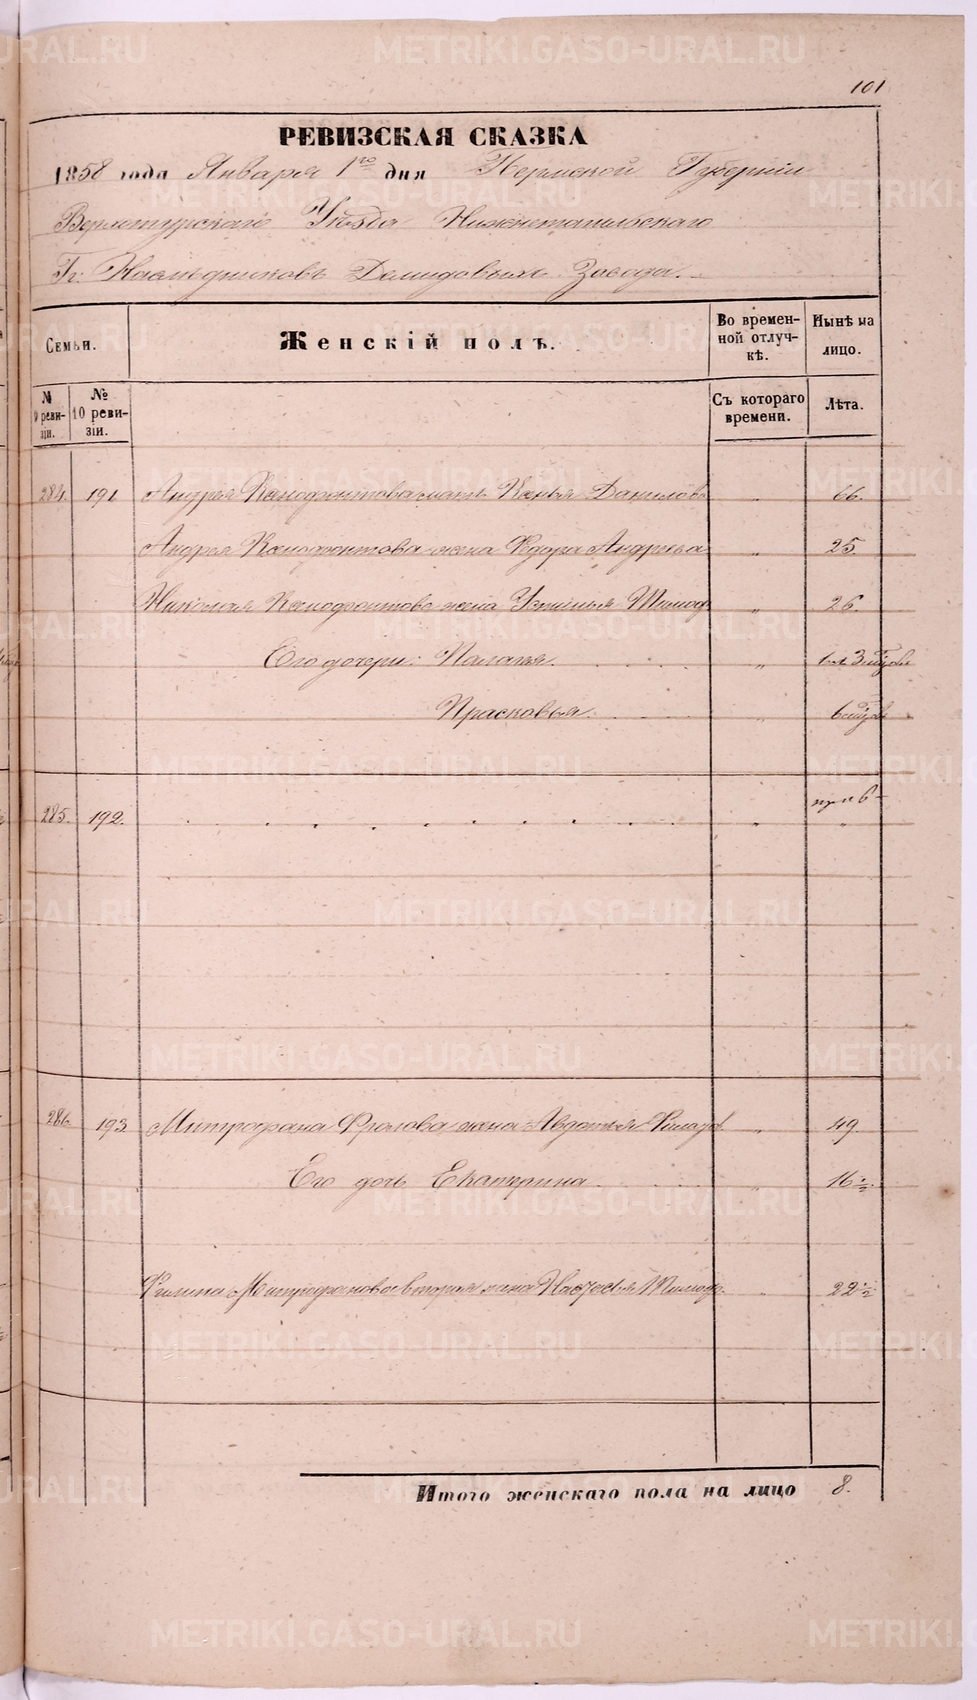 101
РЕВИЗСКАЯ СКАЗКА
1858 года Января 1го дня Пермской Губернии
Верхотурскаго Уезда Нижнетагильскаго
Гг. Наследниковъ Демидовыхъ Завода.
Семьи.
Женскій полъ.
Во времен-
ной отлуч-
кѣ.
Нынѣ на
лицо.
№
9 реви-
зіи.
№
10 реви-
зіи.
Съ котораго
времени.
Лѣта.
284. 191 Андрея Ксенофонтова мать Данилов. " 66.
Андрея Ксенофонтова жена Федора Андреева " 25
Николая Ксенофонтова жена Устинья Тимоф. " 26.
Его дочери: Палагея. "
Прасковья. "
285. 192. " "
286. 193 Митрофана Фролова жена Авдотья " 49
Его дочь Екатерина " 16 ½
Филипа Митрофанова вторая жена Настасья Тимоф. " 22 ½
Итого женскаго пола на лицо 8.
METRIKI.GASO-URAL.RU